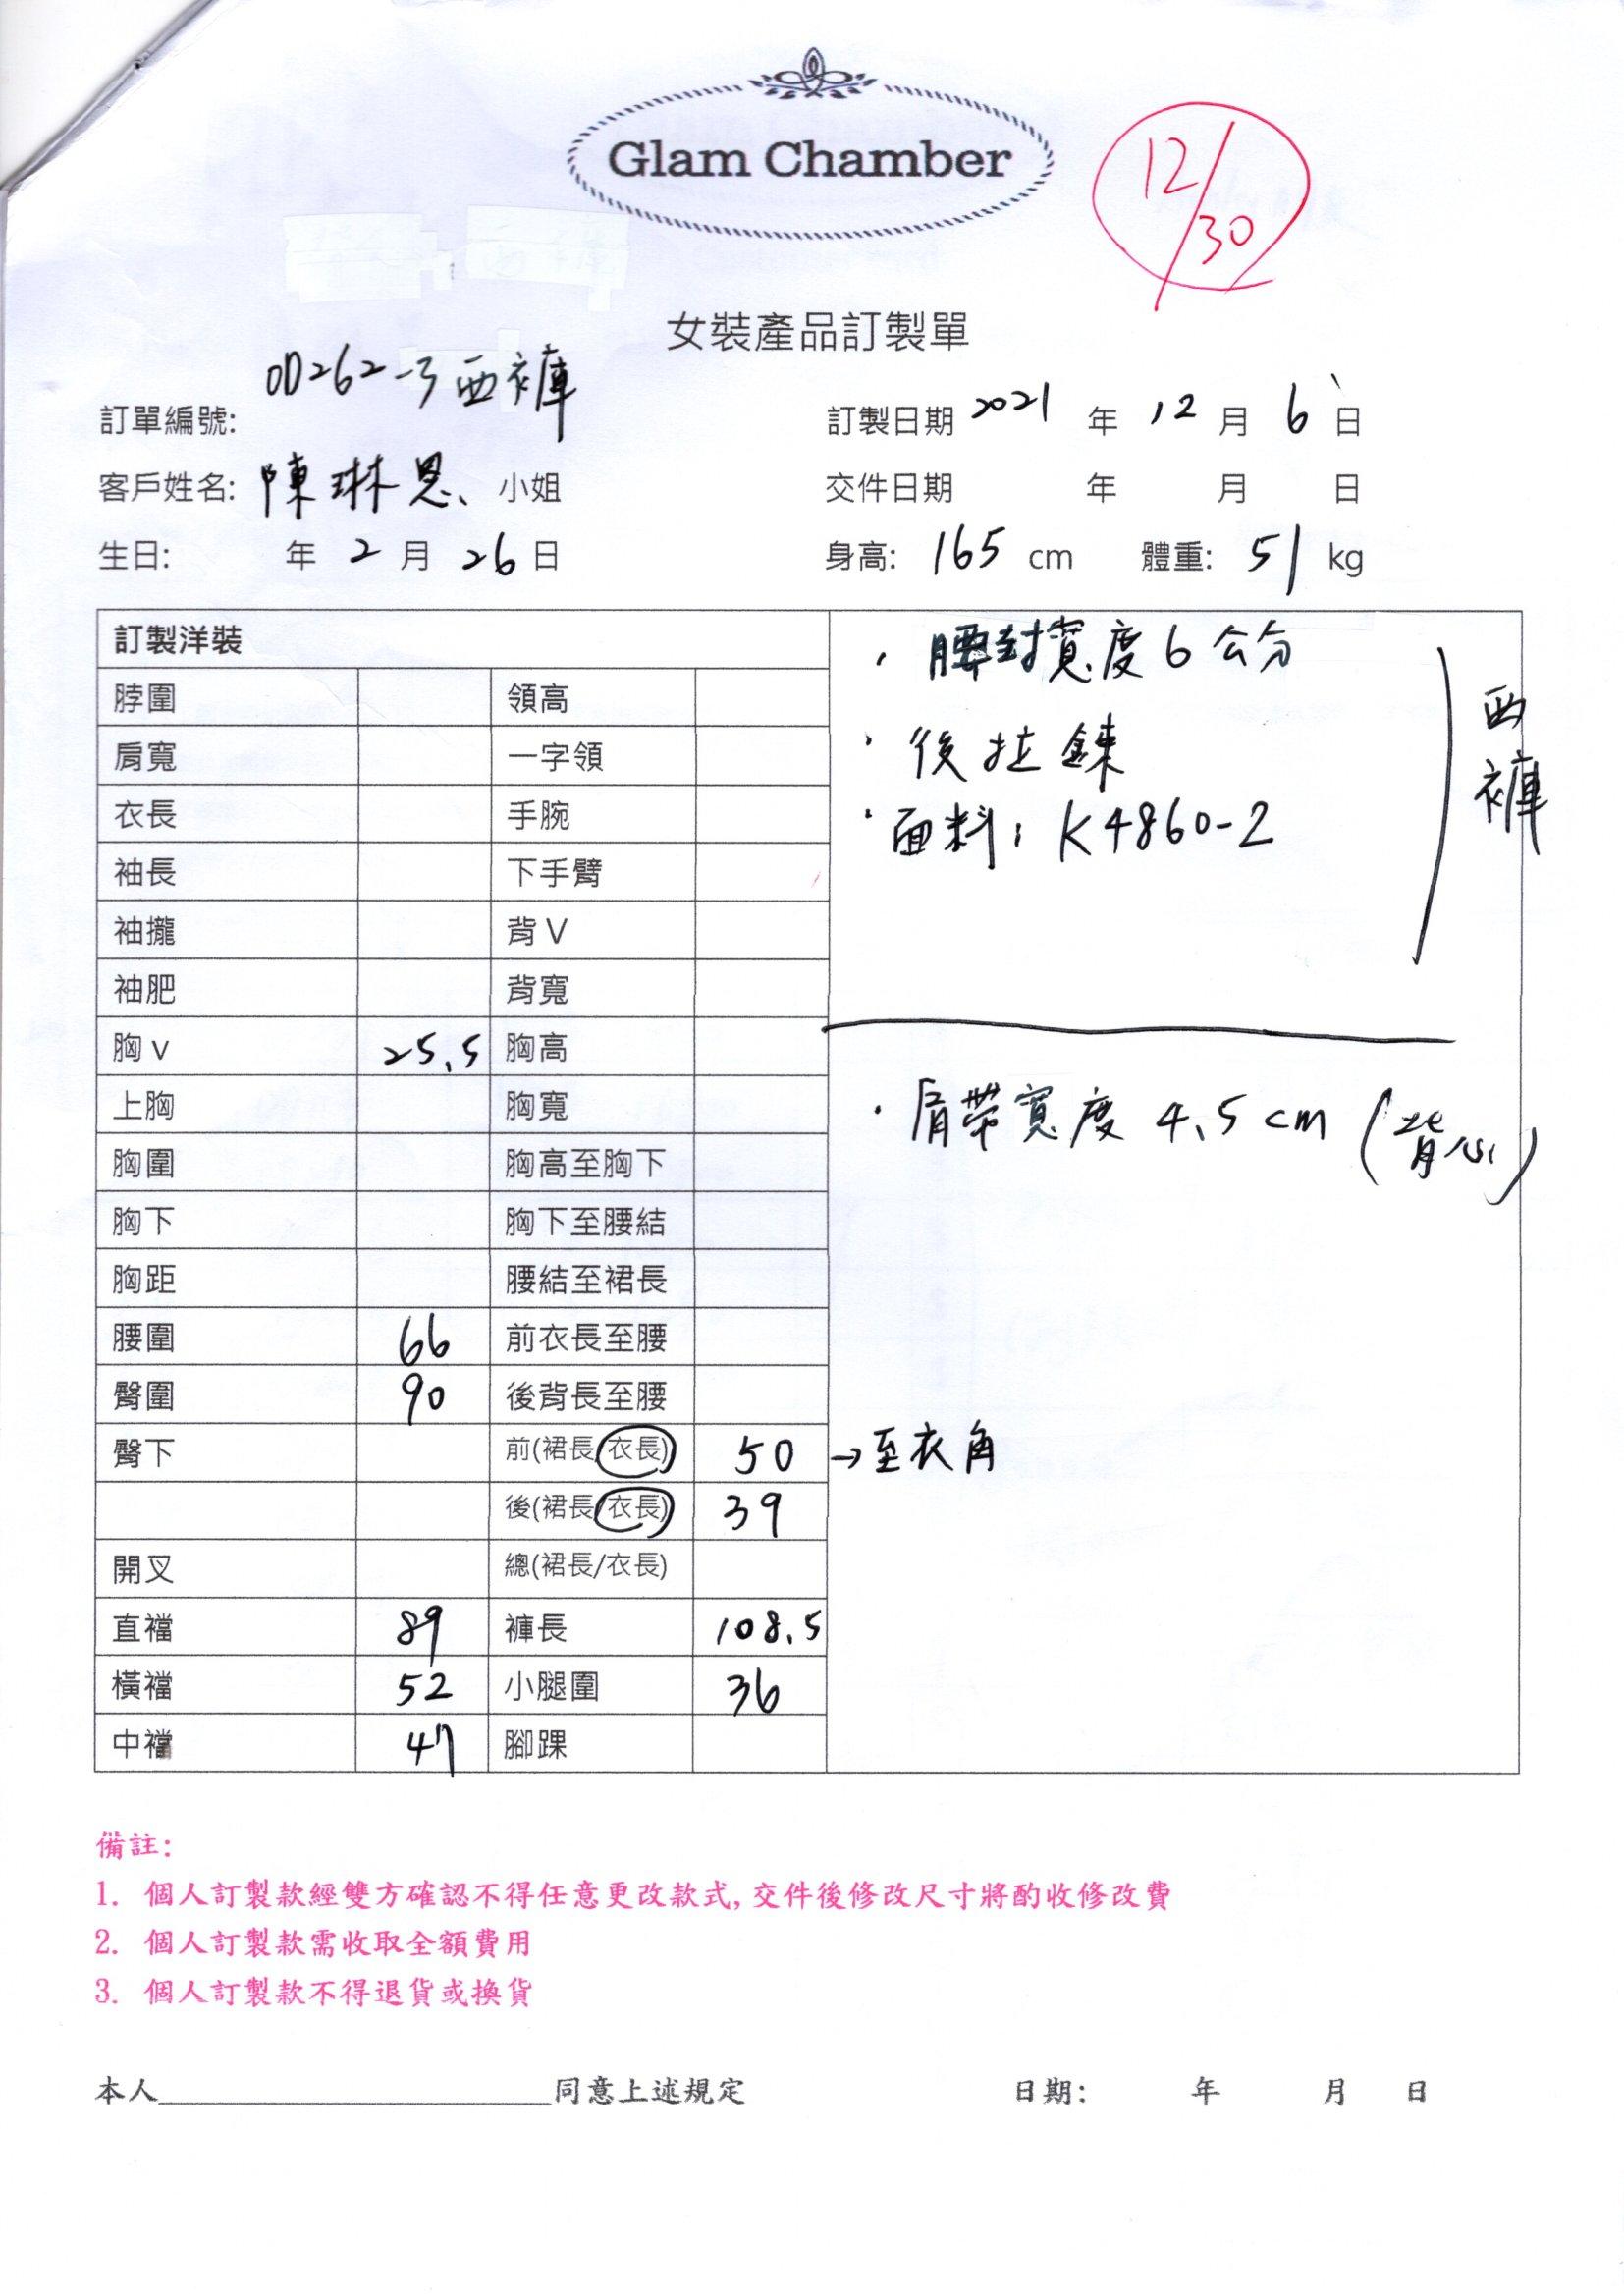 Glam Chamber
12/30
女裝產品訂製單
訂單編號: OD262-3西褲
訂製日期 2021 年 12 月 6 日
客戶姓名: 陳琳恩、小姐
交件日期 年 月 日
生日: 年 2 月 26 日
身高: 165 cm 體重: 51 kg
訂製洋裝
脖圍 領高
肩寬 一字領
衣長 手腕
袖長 下手臂
袖攏 背V
袖肥 背寬
胸v 25.5 胸高
上胸 胸寬
胸圍 胸高至胸下
胸下 胸下至腰結
胸距 腰結至裙長
腰圍 66 前衣長至腰
臀圍 90 後背長至腰
臀下 前(裙長/衣長) 50 →至衣角
後(裙長/衣長) 39
開叉 總(裙長/衣長)
直襠 89 褲長 108.5
橫襠 52 小腿圍 36
中襠 47 腳踝
· 腰封寬度6公分
· 後拉鍊
· 面料: K4860-2
西褲
· 肩帶寬度 4.5cm (背心)
備註:
1. 個人訂製款經雙方確認不得任意更改款式,交件後修改尺寸將酌收修改費
2. 個人訂製款需收取全額費用
3. 個人訂製款不得退貨或換貨
本人____________________同意上述規定 日期: 年 月 日